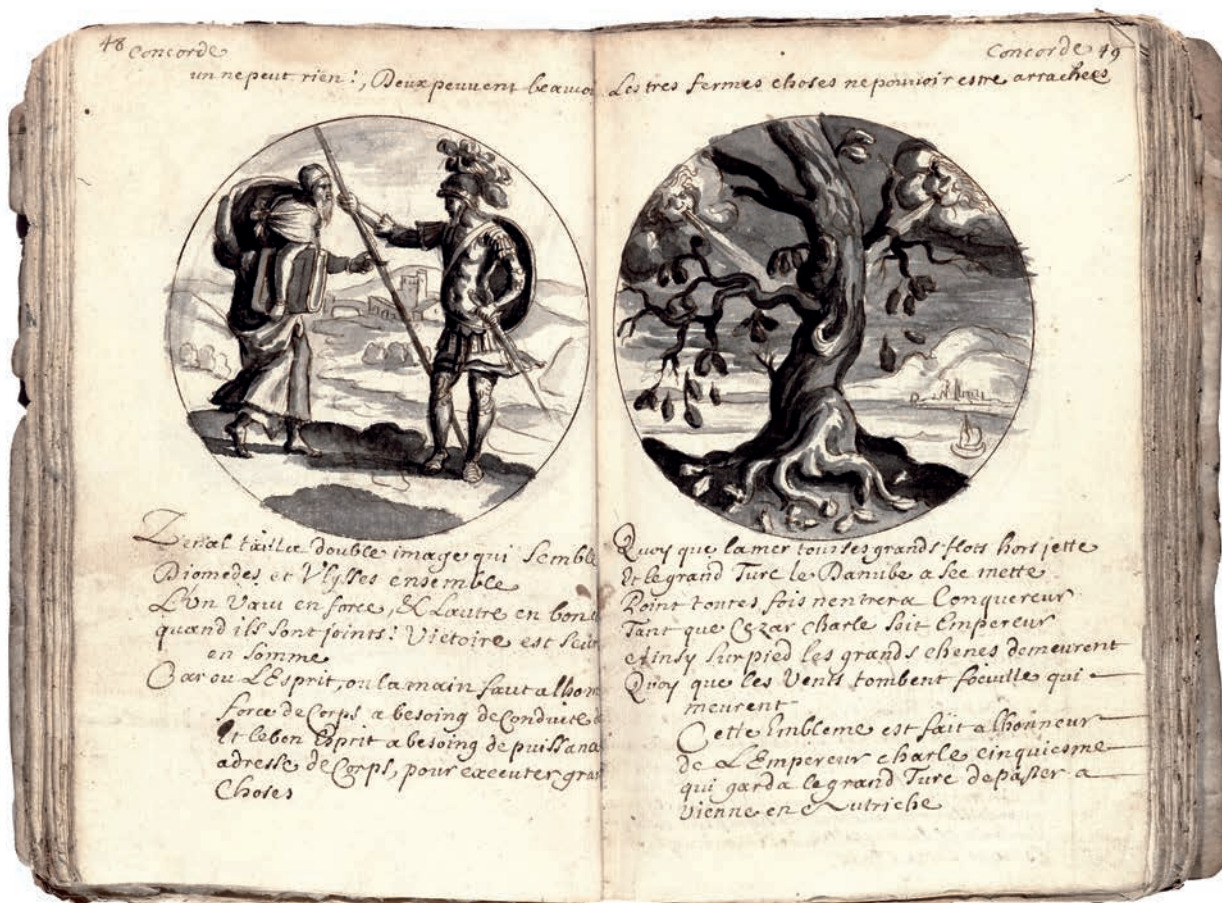 48 Concorde
un ne peut rien!, Deux peuvent beaucou
Zenal tailla double image qui semble
Diomedes et Ulysses ensemble
L'un vaut en force, & Lautre en bon
quand ils sont joints! Victoire est
en somme
Car ou L'Esprit, ou la main faut a lhom
force de Corps a besoing de Conduite
Et le bon Esprit a besoing de puissan
adresse de Corps, pour executer gra
Choses
Concorde 49
Les tres fermes choses ne pouvoir estre arrachees
Quoy que la mer tous ses grands flots hors jette
Et le grand Turc le Danube a sec mette
Point toutes fois nentrera Conquereur
Tant que Cezar charle soit Empereur
Ainsy sur pied les grands chenes demeurent
Quoy que les Vents tombent foeuille qui
meurent
Cette Embleme est fait a lhonneur
de L'Empereur charle cinquiesme
qui garda le grand Turc de passer a
Vienne en Autriche